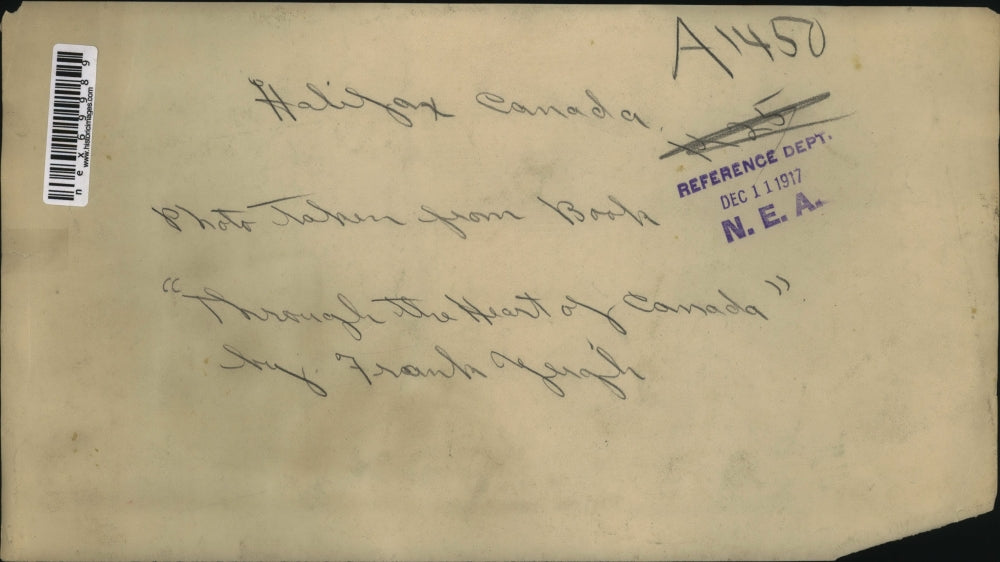 A1450
Halifax Canada.
25
REFERENCE DEPT.
DEC 11 1917
N. E. A.
Photo taken from Book
"Through the Heart of Canada"
by Frank Yeigh
nex69989
www.historicimages.com